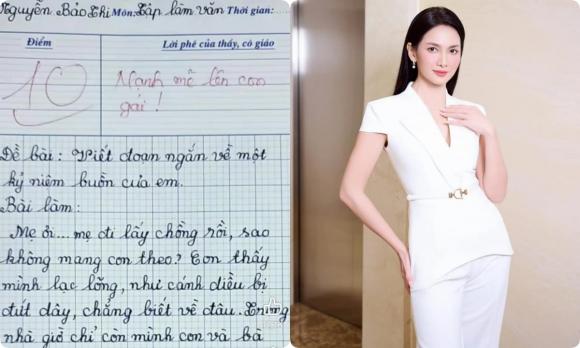 Nguyễn Bảo Thi Môn: Tập làm văn Thời gian:
Điểm
Lời phê của thầy, cô giáo
10
Mạnh mẽ lên con
gái!
Đề bài: Viết đoạn ngắn về một
kỷ niệm buồn của em.
Bài làm:
Mẹ ơi... mẹ đi lấy chồng rồi, sao
không mang con theo? Con thấy
mình lạc lõng, như cánh diều bị
đứt dây, chẳng biết về đâu. Trong
nhà giờ chỉ còn mình con và bà